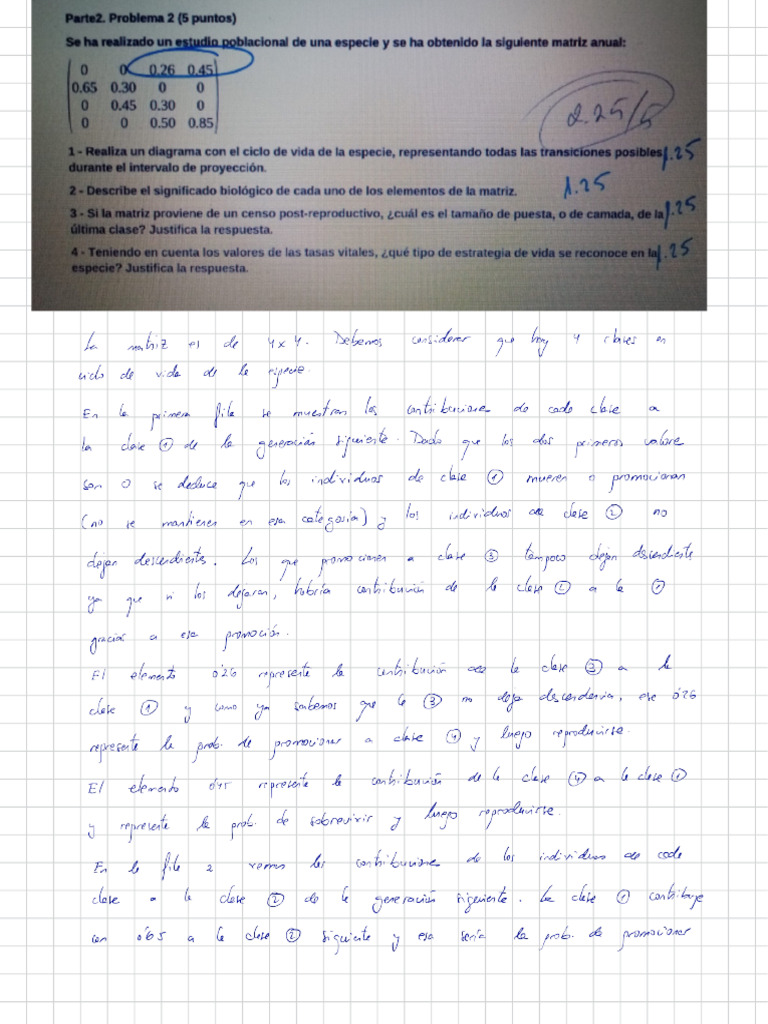 Parte2. Problema 2 (5 puntos)
Se ha realizado un estudio poblacional de una especie y se ha obtenido la siguiente matriz anual:
0 0 0.26 0.45
0.65 0.30 0 0
0 0.45 0.30 0
0 0 0.50 0.85
2.25/5
1 - Realiza un diagrama con el ciclo de vida de la especie, representando todas las transiciones posibles 1.25
durante el intervalo de proyección.
2 - Describe el significado biológico de cada uno de los elementos de la matriz. 1.25
3 - Si la matriz proviene de un censo post-reproductivo, ¿cuál es el tamaño de puesta, o de camada, de la 1.25
última clase? Justifica la respuesta.
4 - Teniendo en cuenta los valores de las tasas vitales, ¿qué tipo de estrategia de vida se reconoce en la 1.25
especie? Justifica la respuesta.
La matriz es de 4x4. Debemos considerar que hay 4 clases en
ciclo de vida de la especie.
En la primera fila se muestran las contribuciones de cada clase a
la clase ① de la generación siguiente. Dado que los dos primeros valores
son 0 se deduce que los individuos de clase ① mueren o promocionan
(no se mantienen en esa categoría) y los individuos de clase ② no
dejan descendientes. Los que promocionen a clase ③ tampoco dejan descendientes
ya que si los dejaran, habría contribución de la clase ② a la ①
gracias a esa promoción.
El elemento 0'26 representa la contribución de la clase ③ a la
clase ① y como ya sabemos que la ③ no deja descendencia, ese 0'26
representa la prob. de promocionar a clase ④ y luego reproducirse.
El elemento 0'45 representa la contribución de la clase ④ a la clase ①
y representa la prob. de sobrevivir y luego reproducirse.
En la fila 2 vemos las contribuciones de los individuos de cada
clase a la clase ② de la generación siguiente. La clase ① contribuye
con 0'65 a la clase ② siguiente y esa sería la prob. de promocionar